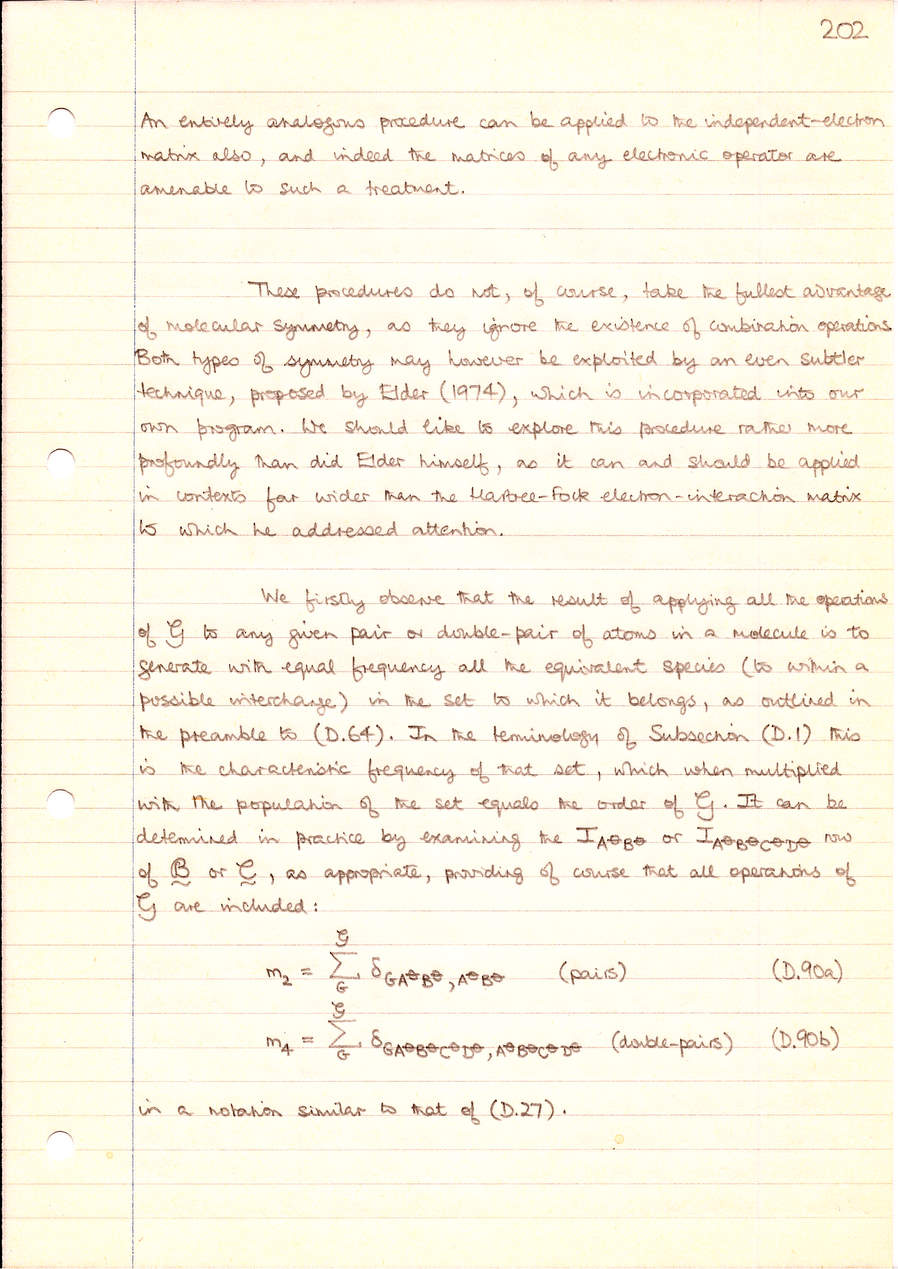 202
An entirely analogous procedure can be applied to the independent-electron
matrix also, and indeed the matrices of any electronic operator are
amenable to such a treatment.
These procedures do not, of course, take the fullest advantage
of molecular symmetry, as they ignore the existence of combination operations.
Both types of symmetry may however be exploited by an even subtler
technique, proposed by Elder (1974), which is incorporated into our
own program. We should like to explore this procedure rather more
profoundly than did Elder himself, as it can and should be applied
in contexts far wider than the Hartree-Fock electron-interaction matrix
to which he addressed attention.
We firstly observe that the result of applying all the operations
of 𝒢 to any given pair or double-pair of atoms in a molecule is to
generate with equal frequency all the equivalent species (to within a
possible interchange) in the set to which it belongs, as outlined in
the preamble to (D.64). In the terminology of Subsection (D.1) this
is the characteristic frequency of that set, which when multiplied
with the population of the set equals the order of 𝒢. It can be
determined in practice by examining the I_{A⊖B⊖} or I_{A⊖B⊖C⊖D⊖} row
of B̰ or C̰, as appropriate, providing of course that all operations of
𝒢 are included:
m₂ = Σ_G^𝒢 δ_{GA⊖B⊖,A⊖B⊖} (pairs) (D.90a)
m₄ = Σ_G^𝒢 δ_{GA⊖B⊖C⊖D⊖,A⊖B⊖C⊖D⊖} (double-pairs) (D.90b)
in a notation similar to that of (D.27).